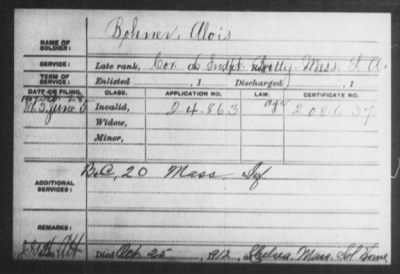 NAME OF SOLDIER: Bohner, Alois
SERVICE: Late rank, Cor. Indpt. Batty. Mass. L. A.
TERM OF SERVICE: Enlisted , 1 Discharged , 1
DATE OF FILING. CLASS. APPLICATION NO. LAW. CERTIFICATE NO.
Invalid, 24.863 208.637
Widow,
Minor,
ADDITIONAL SERVICES: B.C, 20 Mass. Inf
REMARKS:
Died Oct. 25, 1912, Chelsea, Mass. Sol Home